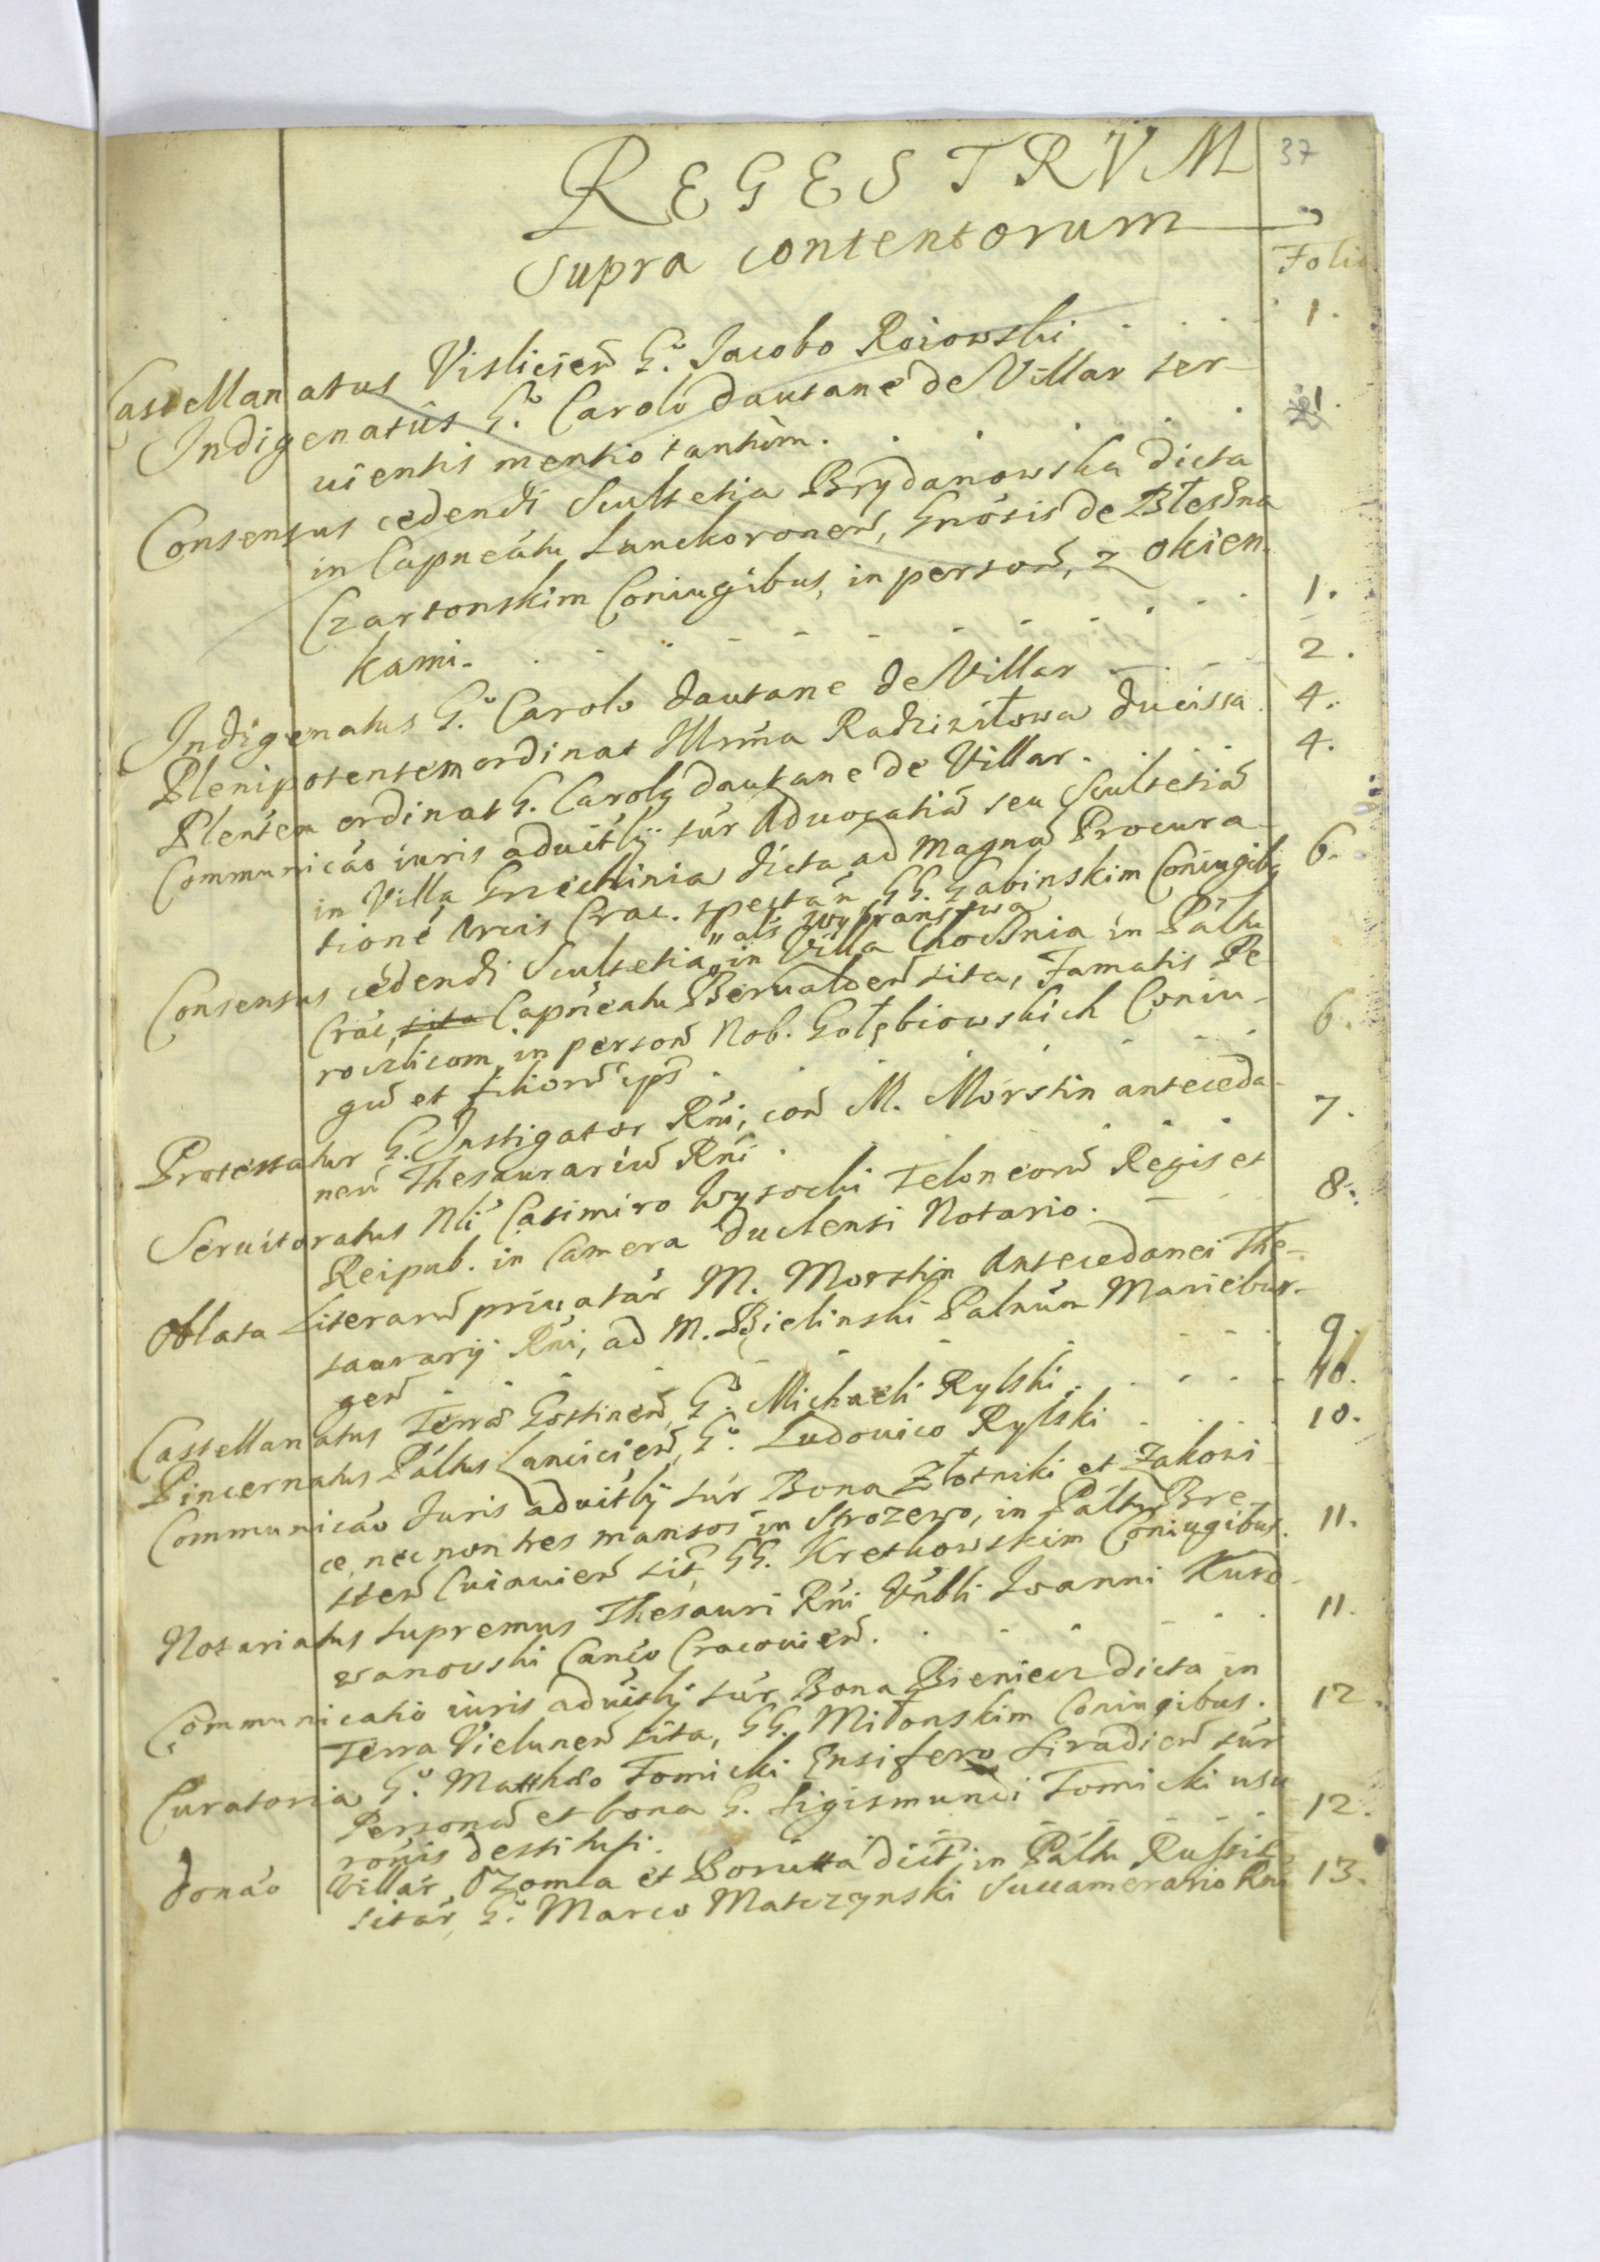 37
REGESTRVM
Supra contentorum
Folio
Castellanatus Vislicien̄ G.o Jacobo Roiowski . . . . 1.
Indigenatûs G.o Carolo Dautane de Villar ser-
uientis mentio tantùm. . . . 1.
Consensus cedendi Scultetia Brydanowska dicta
in Capneátu Lanckoronen̄, Gnósis de Błeszna
Czartonskim Coniugibus, in person̄, z okien-
kami. . . . 1.
Indigenatus G.o Carolo Dautane de Villar . . . 2.
Plenipotentem ordinat Illrm̃a Radziwiłowa Ducissa. 4.
Plenťem ordinat G. Carolg Dautane de Villar. 4.
Communicáo iuris aduitłij súr Aduocatiā seu Scultetiā
in Villa dicta ad Magnā Procura-
tioné Arcis Crac. spectań GG. Gabinskim Coniugibg 6.
Consensus cédendi Scultetia, in Villa Chocznia in Páłtu
" als wybranstwa
Crác, sita Capneatu Berualden̄ sita, Famatis Pe
roczlicom in person̄ Nob. Gołębiowskich Coniu-
gū et filiorū ipś . . . 6.
Protestatur G. Instigator Rńi, con̄ M. Morstin anteceda-
neū Thesaurariū Rńi . . . 7.
Seruitoratus Nli Casimiro Wysocki Teloneorū Regis et
Reipub. in Camera Duclensi Notario. 8.
Oblata Literarū priuatár M. Morstin Antecedanei The-
saurarij Rńi, ad M. Bielinski Palnúm Mariebur-
gen̄ . . . 9.
Castellanatus Terræ Gostinen̄, G.o Michaeli Rylski . . . 10.
Pincernatus Páltus Lancicien̄, G.o Ludouico Rylski . . . 10.
Communicáo Iuris aduitłij súr Bona Złotniki et Zakowi-
ce, nec non tres mansos in Strozewo, in Páłtu Bre-
sten̄ Cuiauien̄ sit, GG. Kretkowskim Coniugibus. 11.
Notariatus supremus Thesauri Rńi Vńbli Ioanni Kurd-
wanowski Canćo Cracouien̄. . . . 11.
Communicatio iuris aduitłij súr Bona Bieniec dicta in
Terra Vielunen̄ sita, GG. Miłonskim Coniugibus. 12.
Curatoria G.o Matthæo Tomicki Ensifero Siradien̄ súr
Personā et bona G. Sigismundi Tomicki usu
rońis destituti. . . . 12.
Donáo Villár Ozomla et Borutta dict, in Páłtu Russiæ
sitár, G.o Marco Matczynski Succamerario Rńi 13.